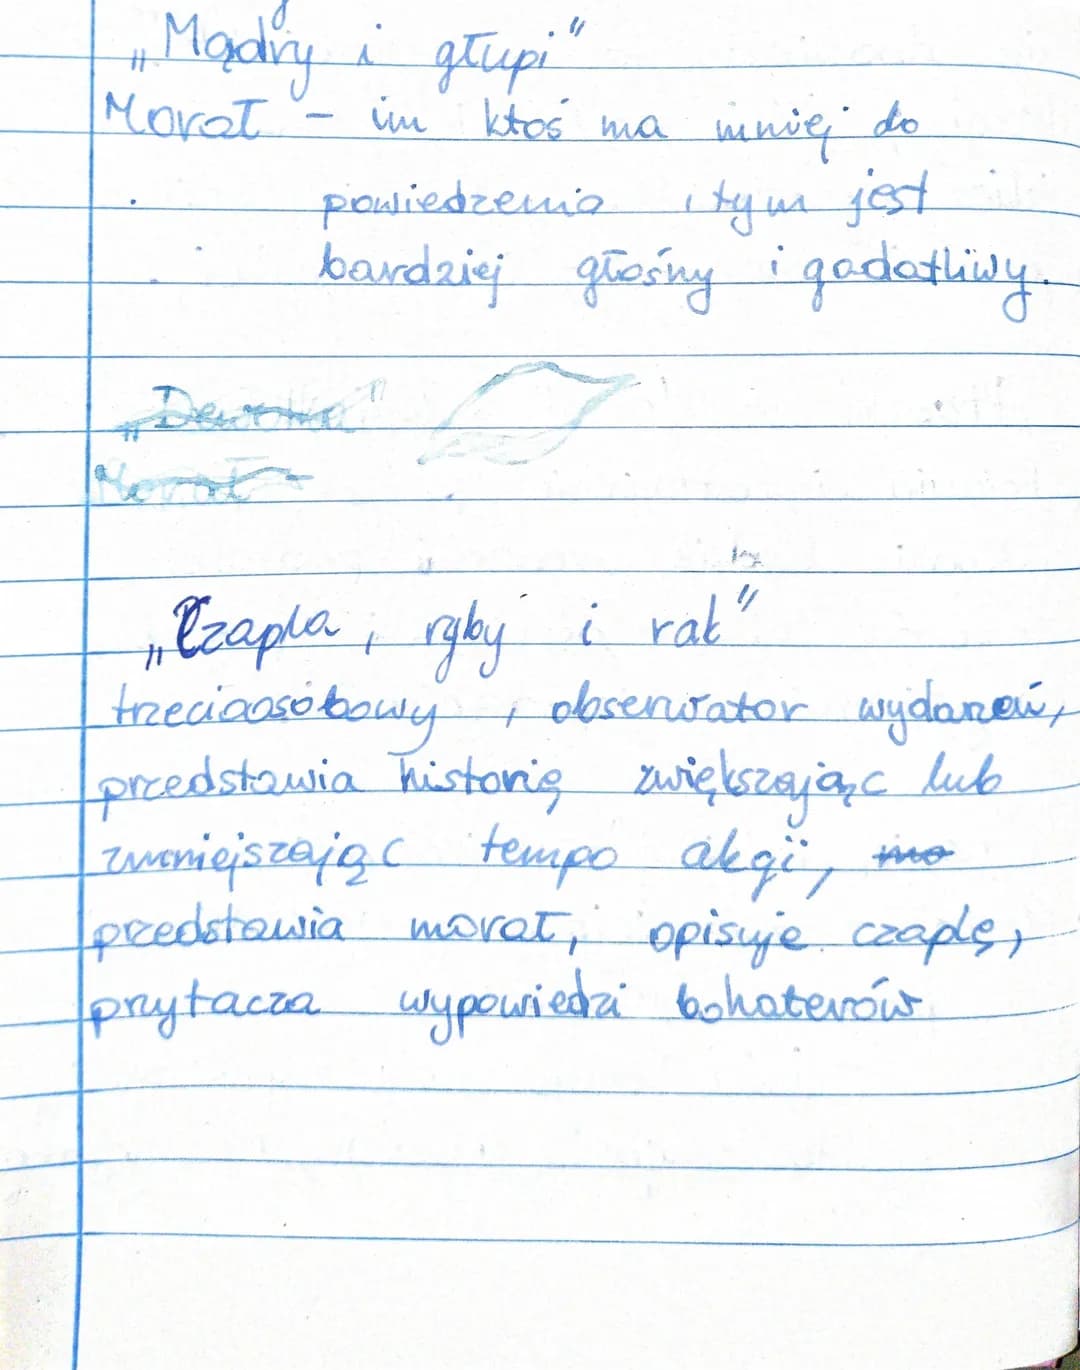 „Mądry i głupi"
Morał – im ktoś ma mniej do
powiedzenia, tym jest
bardziej głośny i gadatliwy.
„Dewotka"
Morał –
„Czapla, ryby i rak"
trzecioosobowy, obserwator wydarzeń,
przedstawia historię zwiększając lub
zmniejszając tempo akcji, mo
przedstawia morał, opisuje czaplę,
przytacza wypowiedzi bohaterów